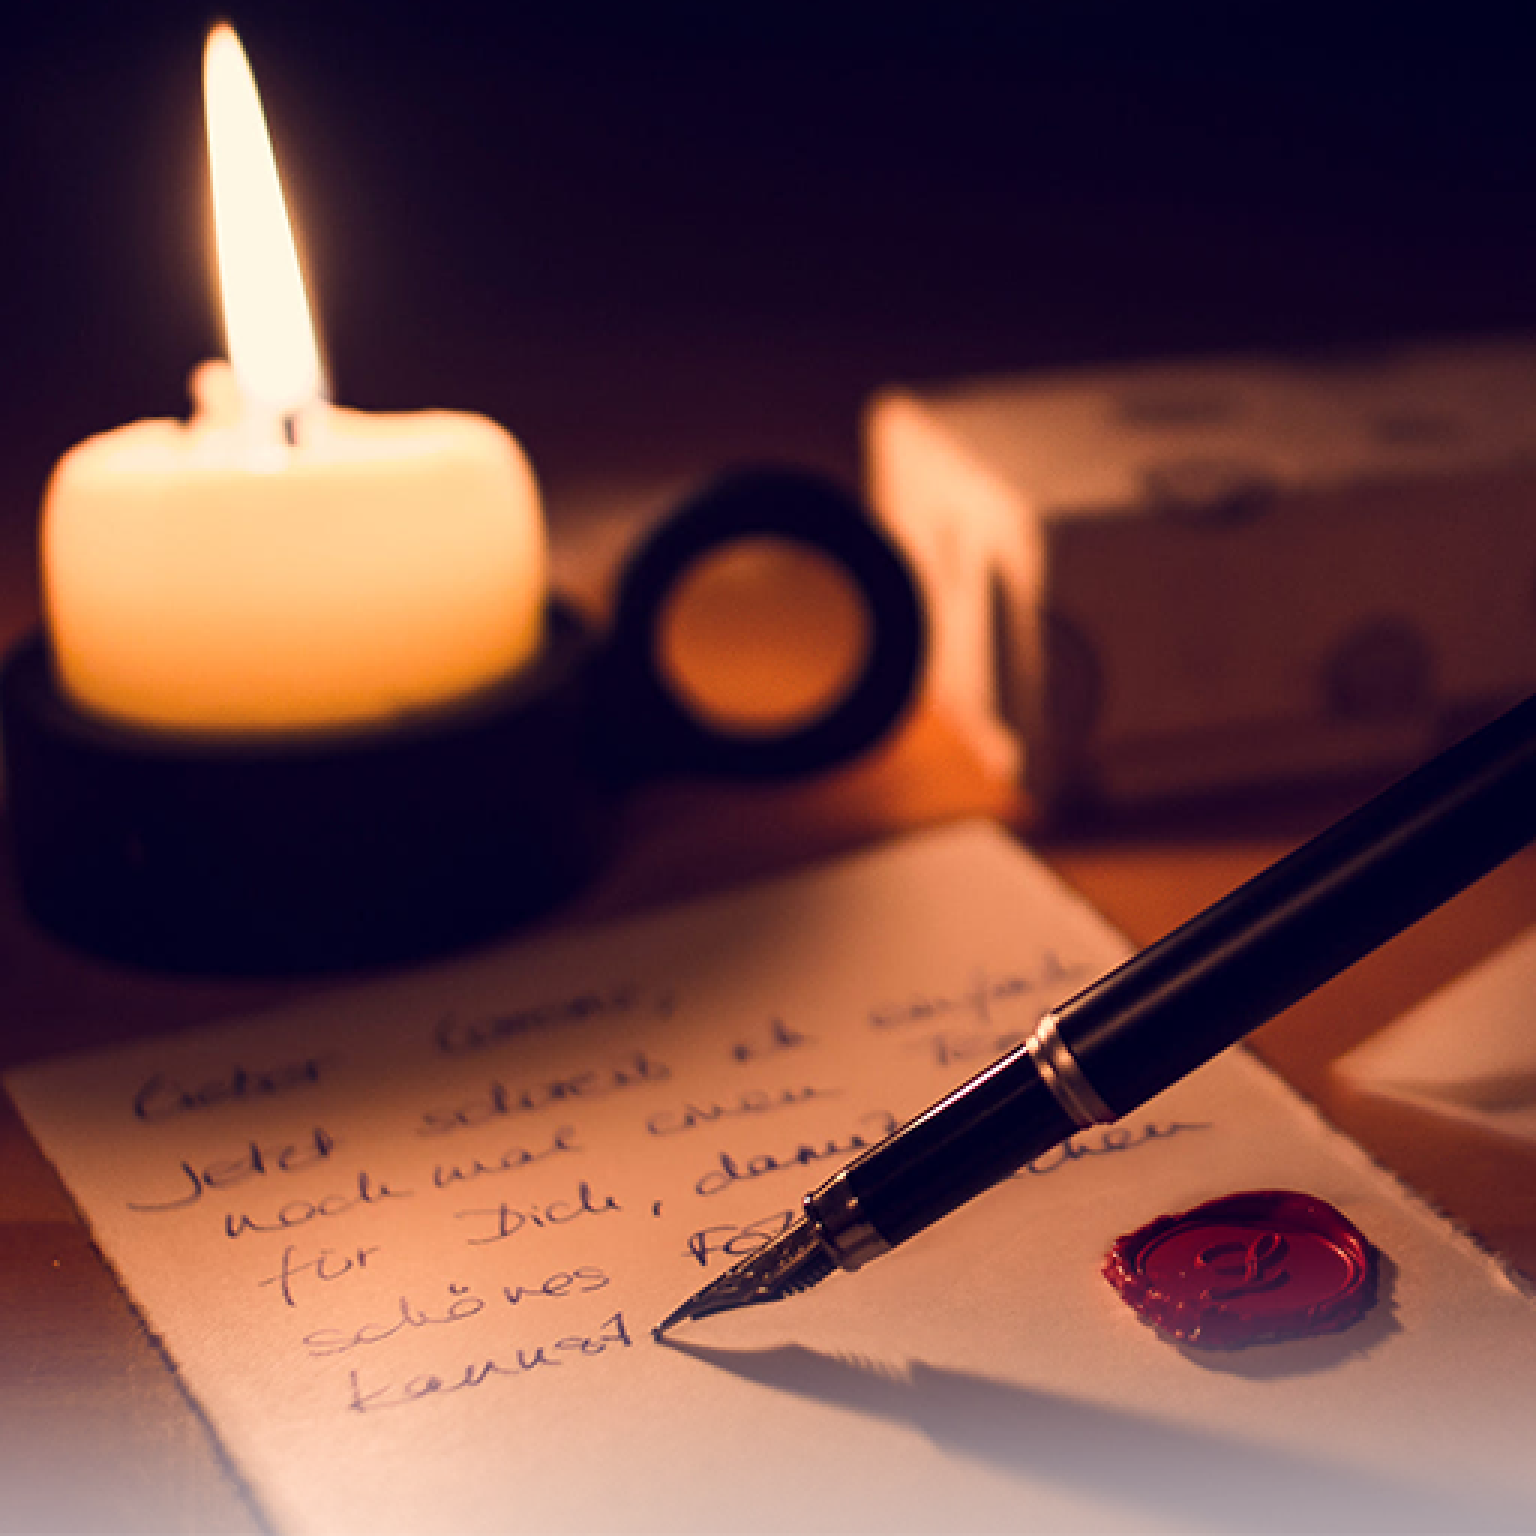 Lieber
Jetzt schreib ich einfach
noch mal einen
für Dich, damit
schönes
kannst
L